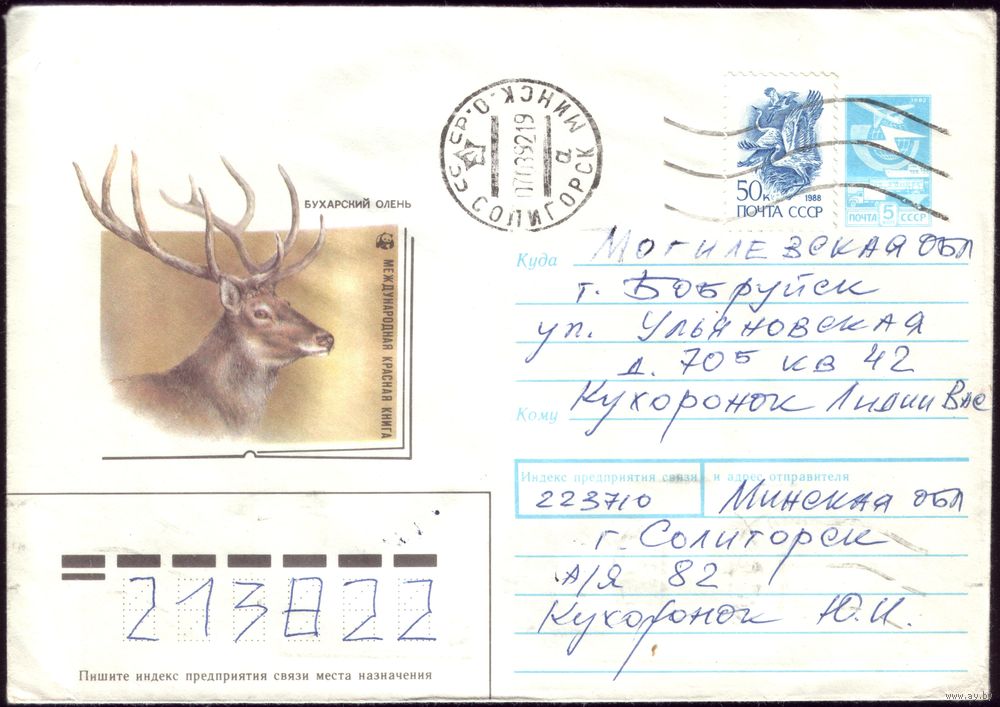 БУХАРСКИЙ ОЛЕНЬ
МЕЖДУНАРОДНАЯ КРАСНАЯ КНИГА
СОЛИГОРСК МИНСК. О.
а
0703 92 19
50к
1988
ПОЧТА СССР
1982
ПОЧТА 5 СССР
Куда Могилевская обл
г. Бобруйск
ул. Ульяновская
д. 705 кв 42
Кому Кухоронок Лидии Вас
Индекс предприятия связи и адрес отправителя
223710 Минская обл
г. Солигорск
а/я 82
Кухоронок Ю.И.
213822
Пишите индекс предприятия связи места назначения
www.ay.by